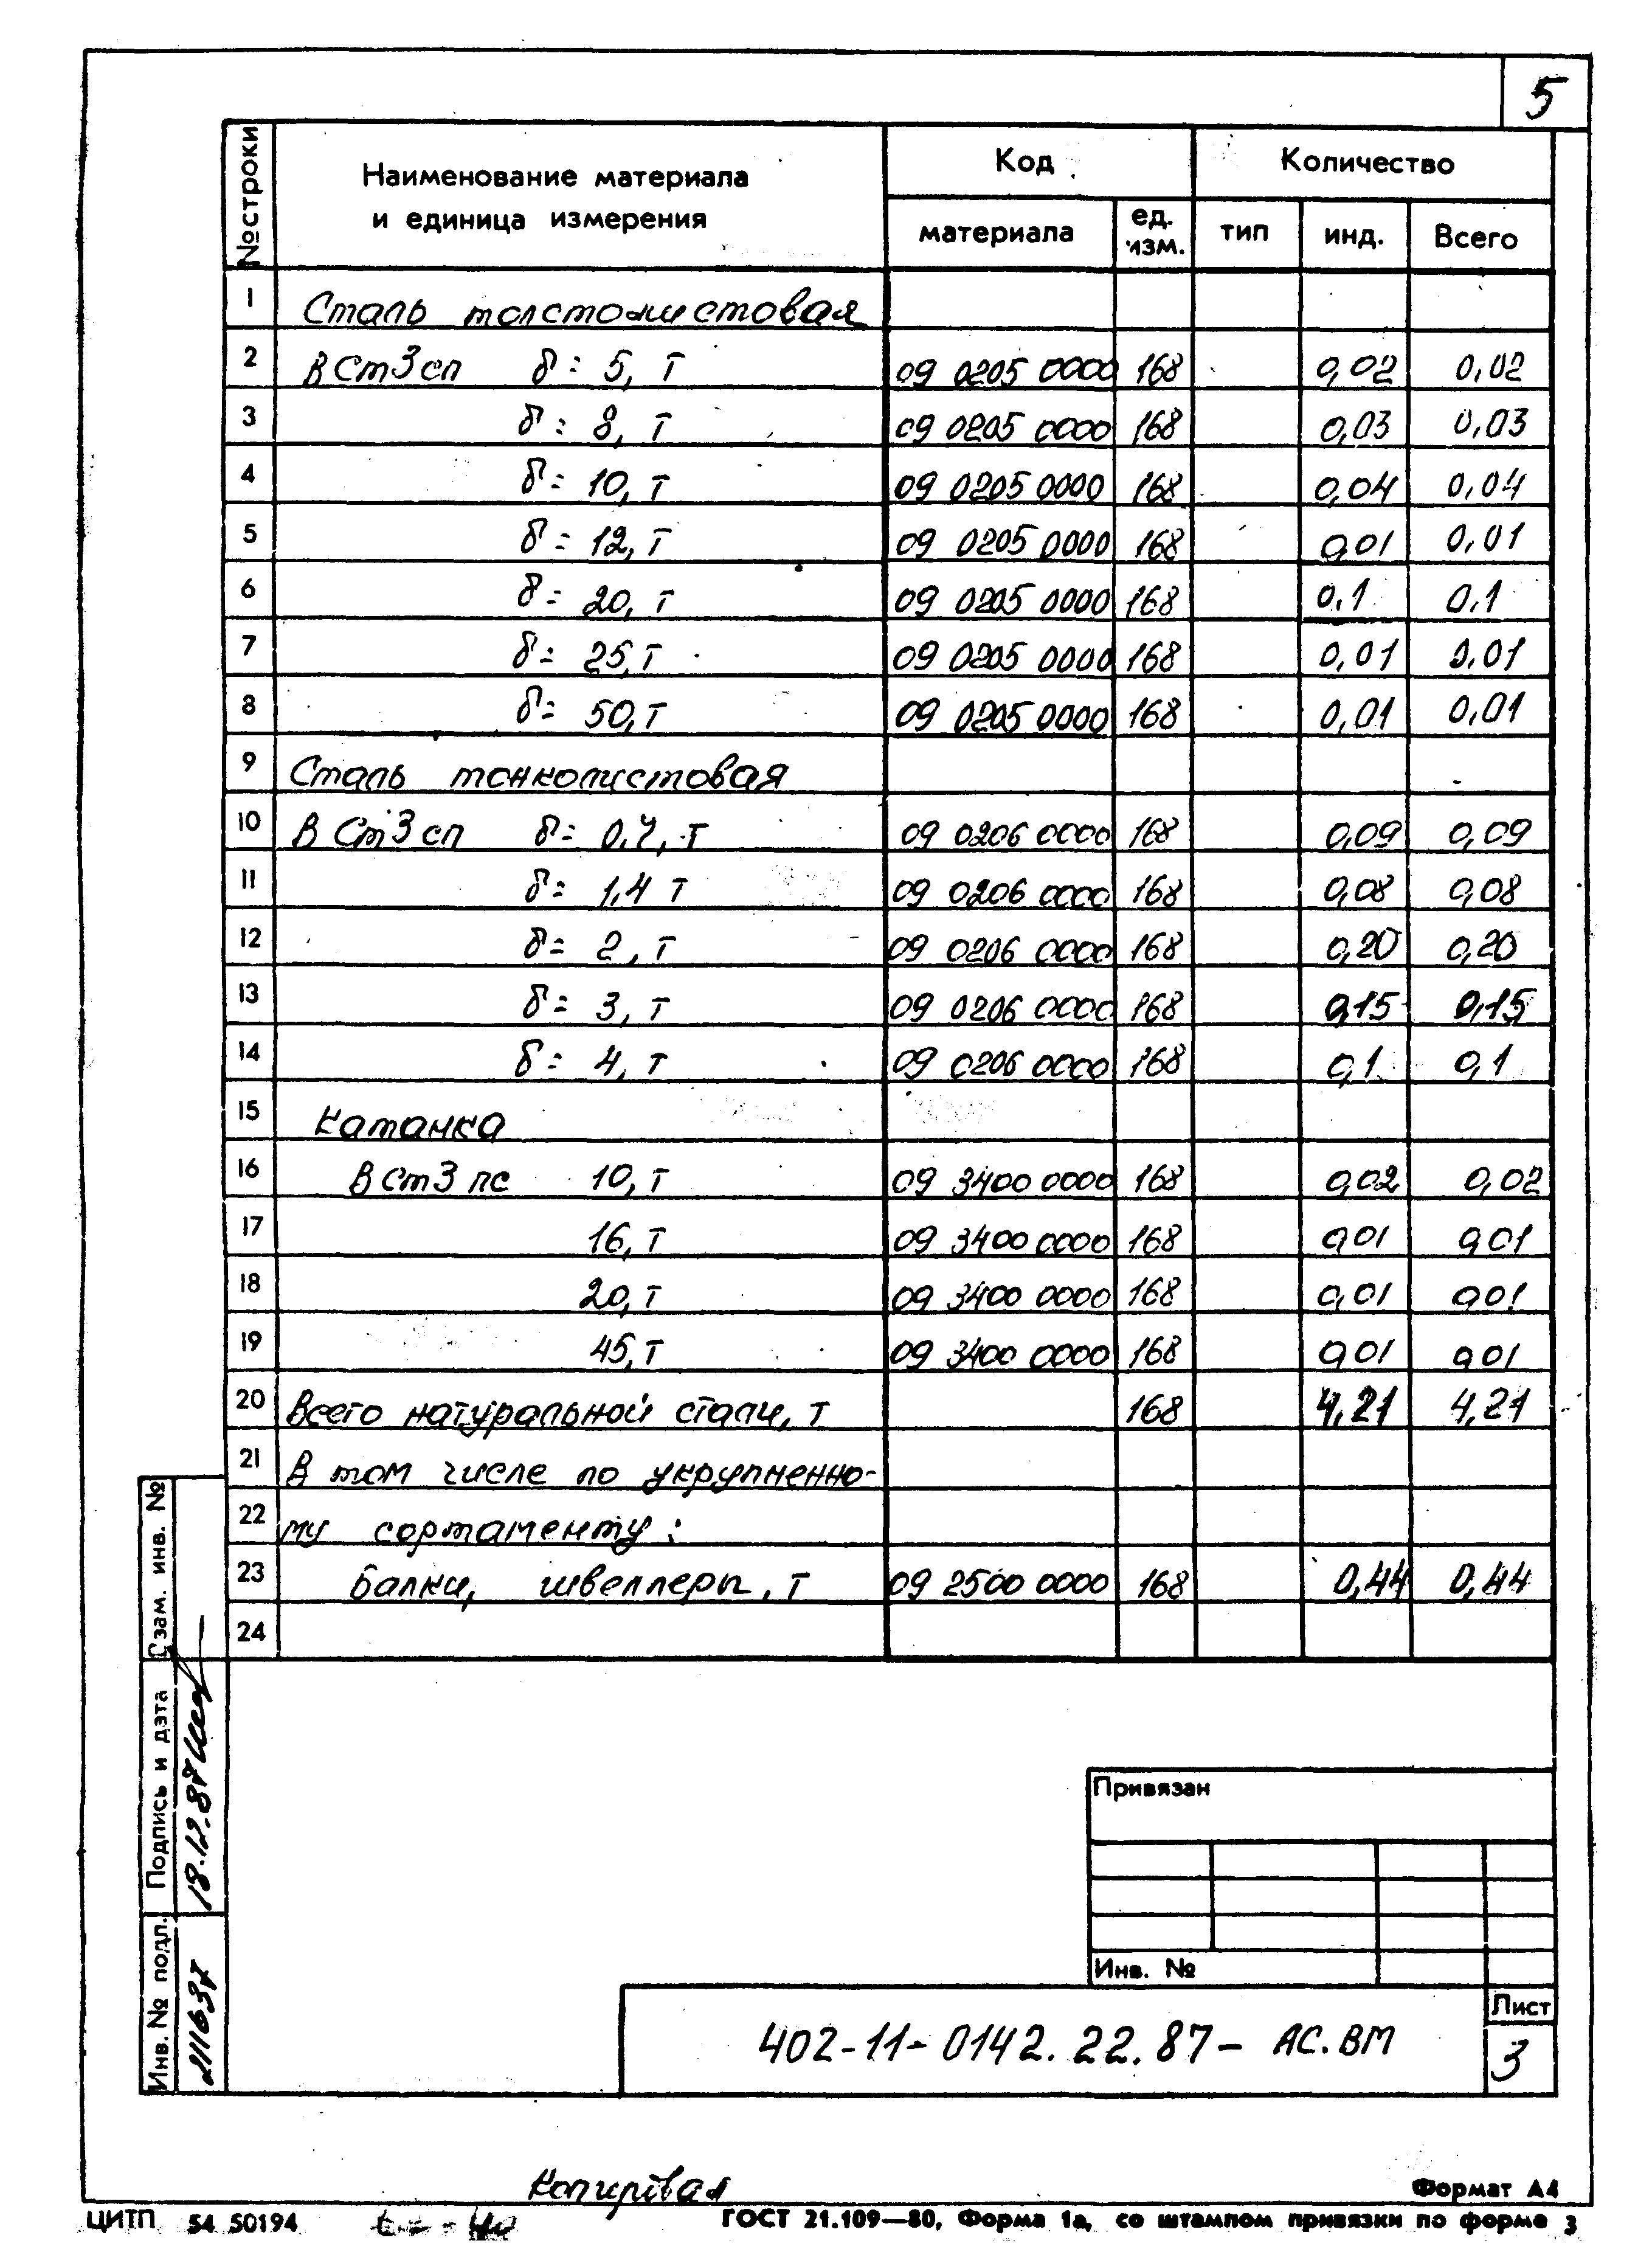 5
№ строки Наименование материала и единица измерения Код Количество
материала ед. изм. тип инд. Всего
1 Сталь толстолистовая
2 ВСт3сп δ= 5, т 09 0205 0000 168 0,02 0,02
3 δ= 8, т 09 0205 0000 168 0,03 0,03
4 δ= 10, т 09 0205 0000 168 0,04 0,04
5 δ= 12, т 09 0205 0000 168 0,01 0,01
6 δ= 20, т 09 0205 0000 168 0,1 0,1
7 δ= 25, т 09 0205 0000 168 0,01 0,01
8 δ= 50, т 09 0205 0000 168 0,01 0,01
9 Сталь тонколистовая
10 ВСт3сп δ= 0,7, т 09 0206 0000 168 0,09 0,09
11 δ= 1,4 т 09 0206 0000 168 0,08 0,08
12 δ= 2, т 09 0206 0000 168 0,20 0,20
13 δ= 3, т 09 0206 0000 168 0,15 0,15
14 δ= 4, т 09 0206 0000 168 0,1 0,1
15 Катанка
16 ВСт3пс 10, т 09 3400 0000 168 0,02 0,02
17 16, т 09 3400 0000 168 0,01 0,01
18 20, т 09 3400 0000 168 0,01 0,01
19 45, т 09 3400 0000 168 0,01 0,01
20 Всего натуральной стали, т 168 4,21 4,21
21 В том числе по укрупненно-
22 му сортаменту:
23 Балки, швеллеры, т 09 2500 0000 168 0,44 0,44
24
Взам. инв. №
Подпись и дата
18.12.87
Инв. № подл.
211637
Привязан
Инв. №
402-11-0142.22.87- АС.ВМ
Лист
3
Копировал
Формат А4
ЦИТП 54 50194
ГОСТ 21.109—80, Форма 1а, со штампом привязки по форме 3